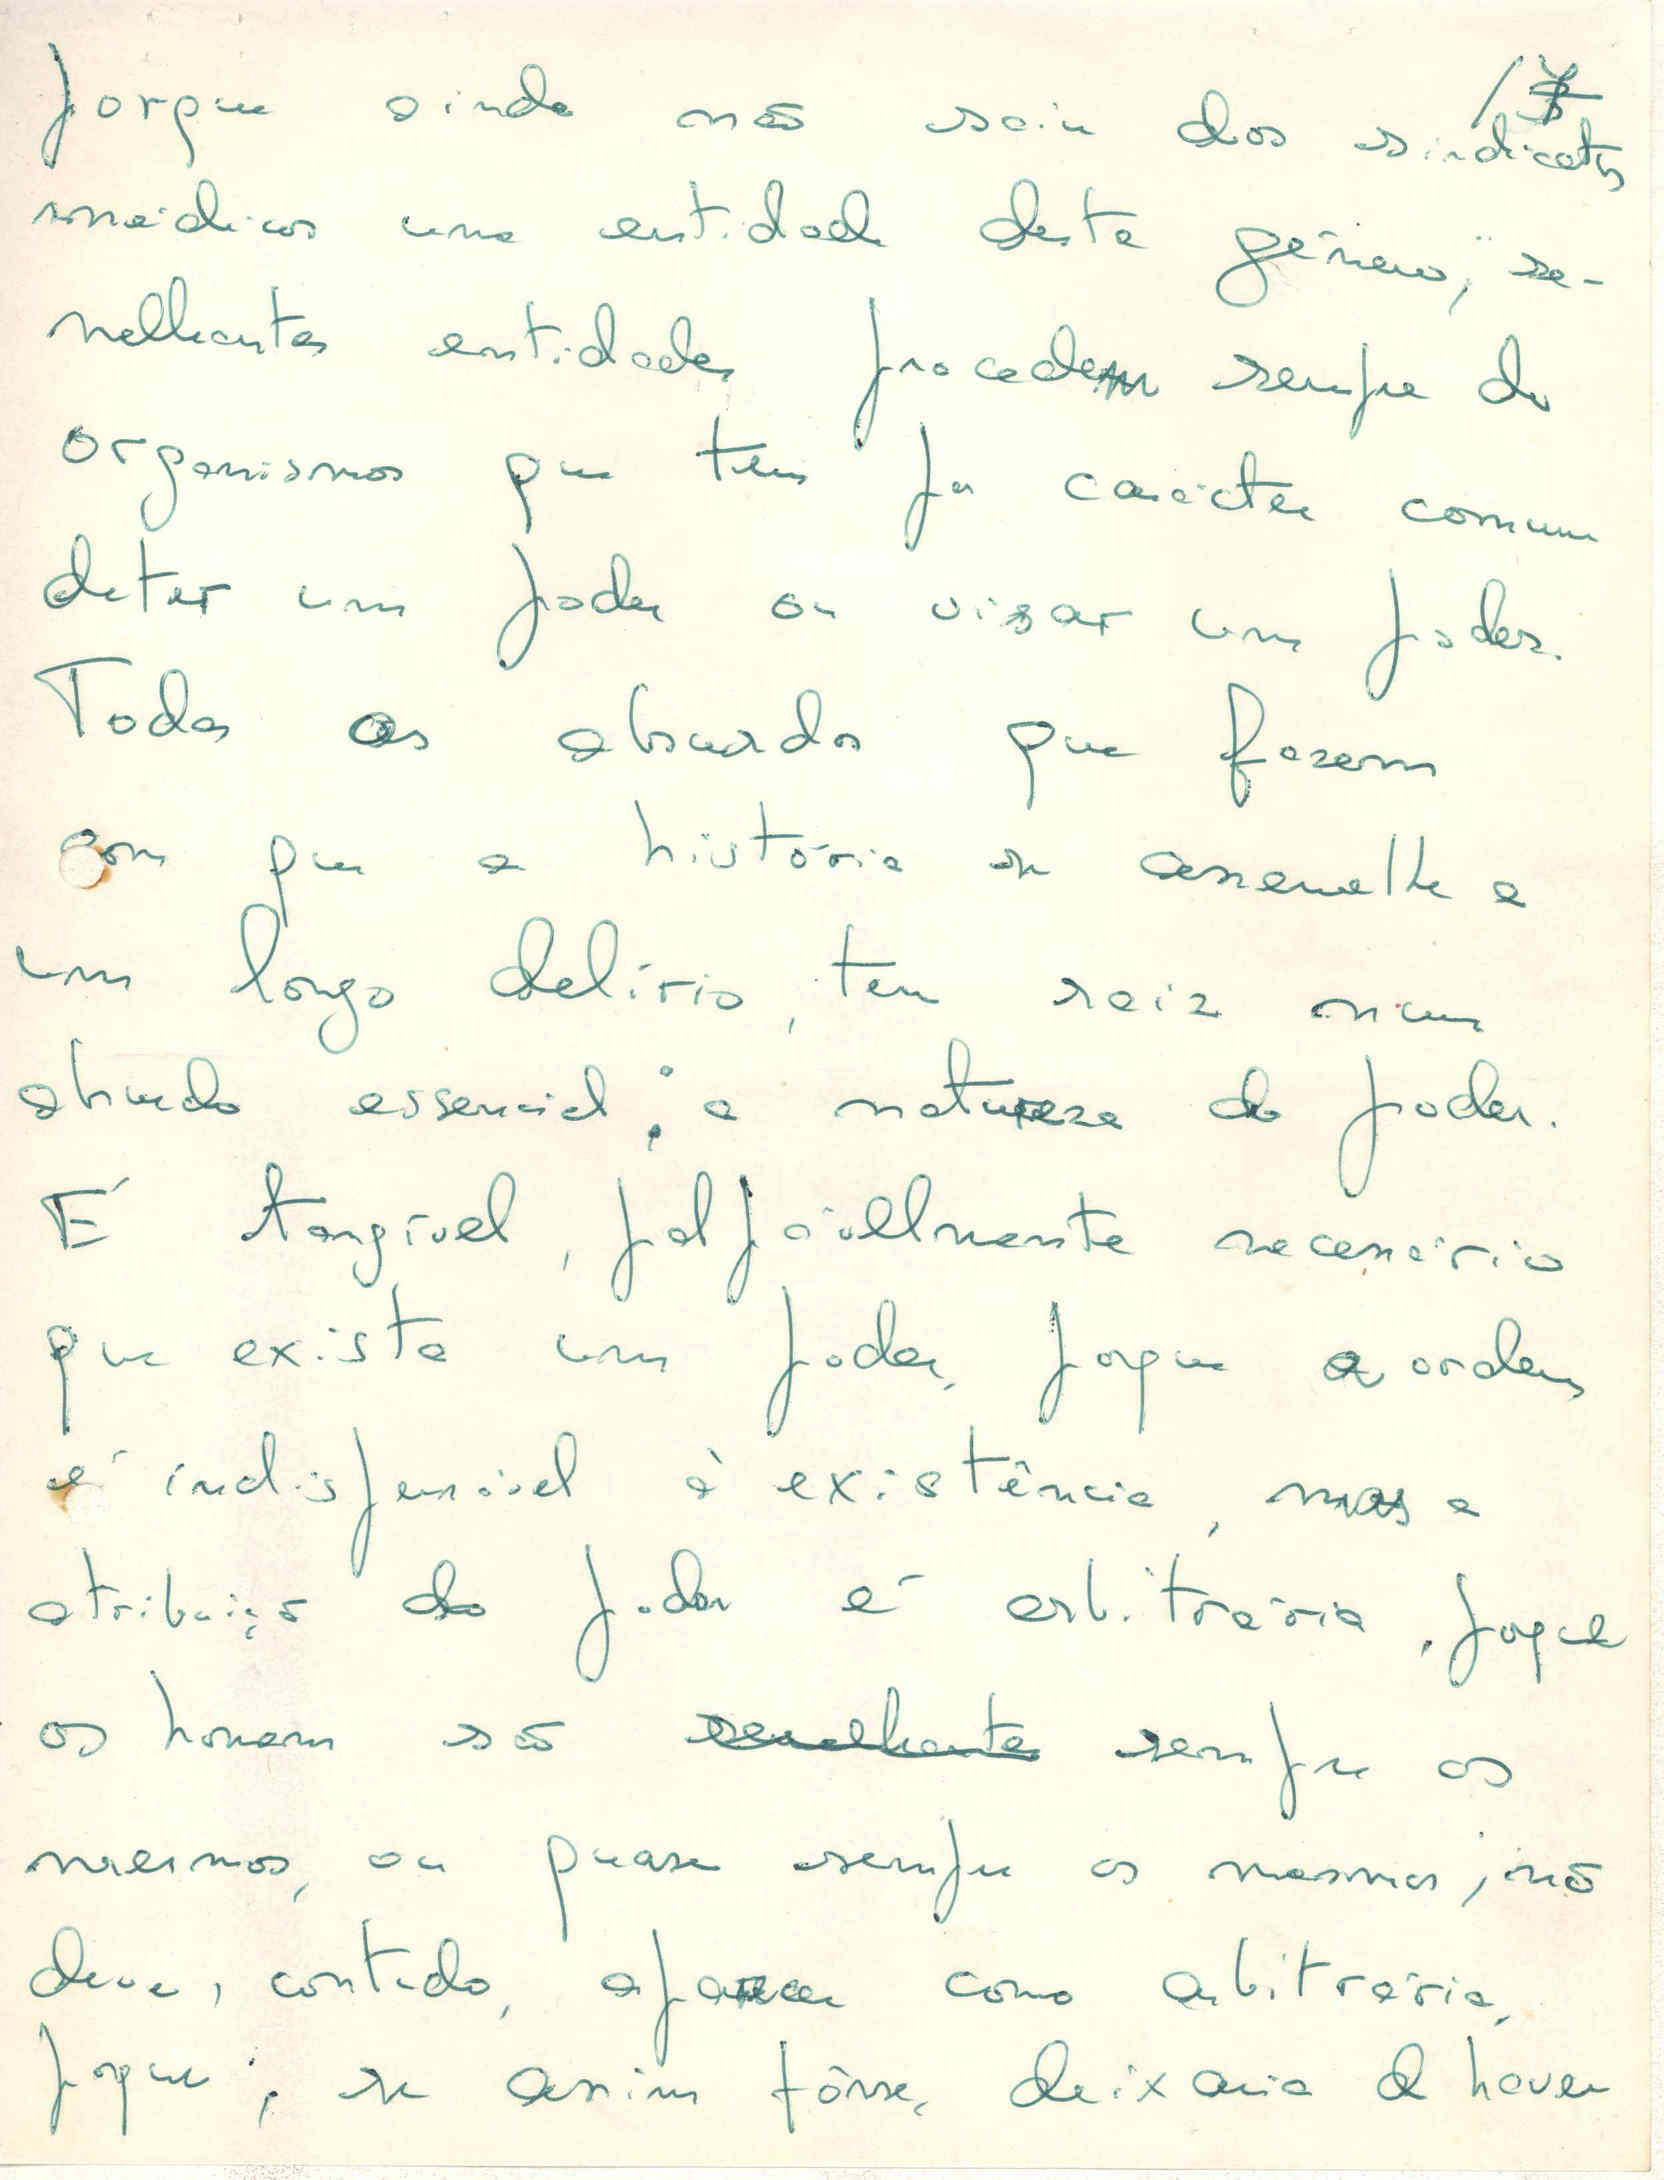 porque ainda não saiu dos sindicatos
médicos uma entidade deste género; se-
melhantes entidades procedem sempre de
organismos que tem por carácter comum
deter um poder ou visar um poder.
Todos os absurdos que fazem
com que a história se assemelhe a
um longo delírio, tem raiz num
absurdo essencial: a natureza do poder.
É tangível, palpávelmente necessário
que exista um poder, porque a ordem
é indispensável à existência, mas a
atribuição do poder é arbitrária, porque
os homens são semelhantes sempre os
mesmos, ou quase sempre os mesmos; não
deve, contudo, aparecer como arbitrária,
porque, se assim fôsse, deixaria de haver